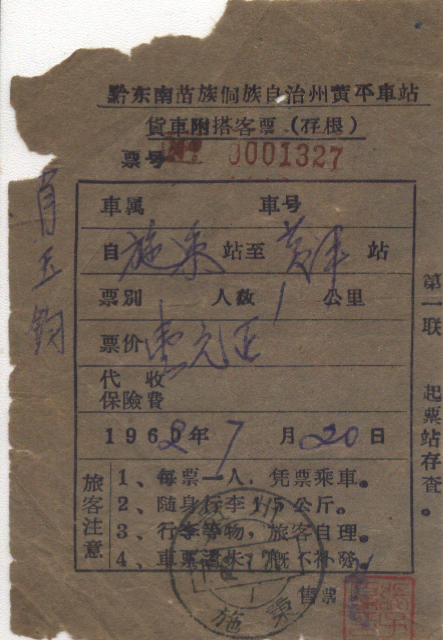 黔东南苗族侗族自治州黄平車站
货車附搭客票(存根)
票号 № 0001327
車属 車号
自施秉站至黄平站
票别 人数 1 公里
票价壹元正
代收
保險費
1962年7月20日
旅客注意
1、每票一人.凭票乘車。
2、随身行李1/5公斤。
3、行李等物,旅客自理。
4、車票遗失,概不补發
售票
第一联 起票站存查。
肖玉钧
施秉